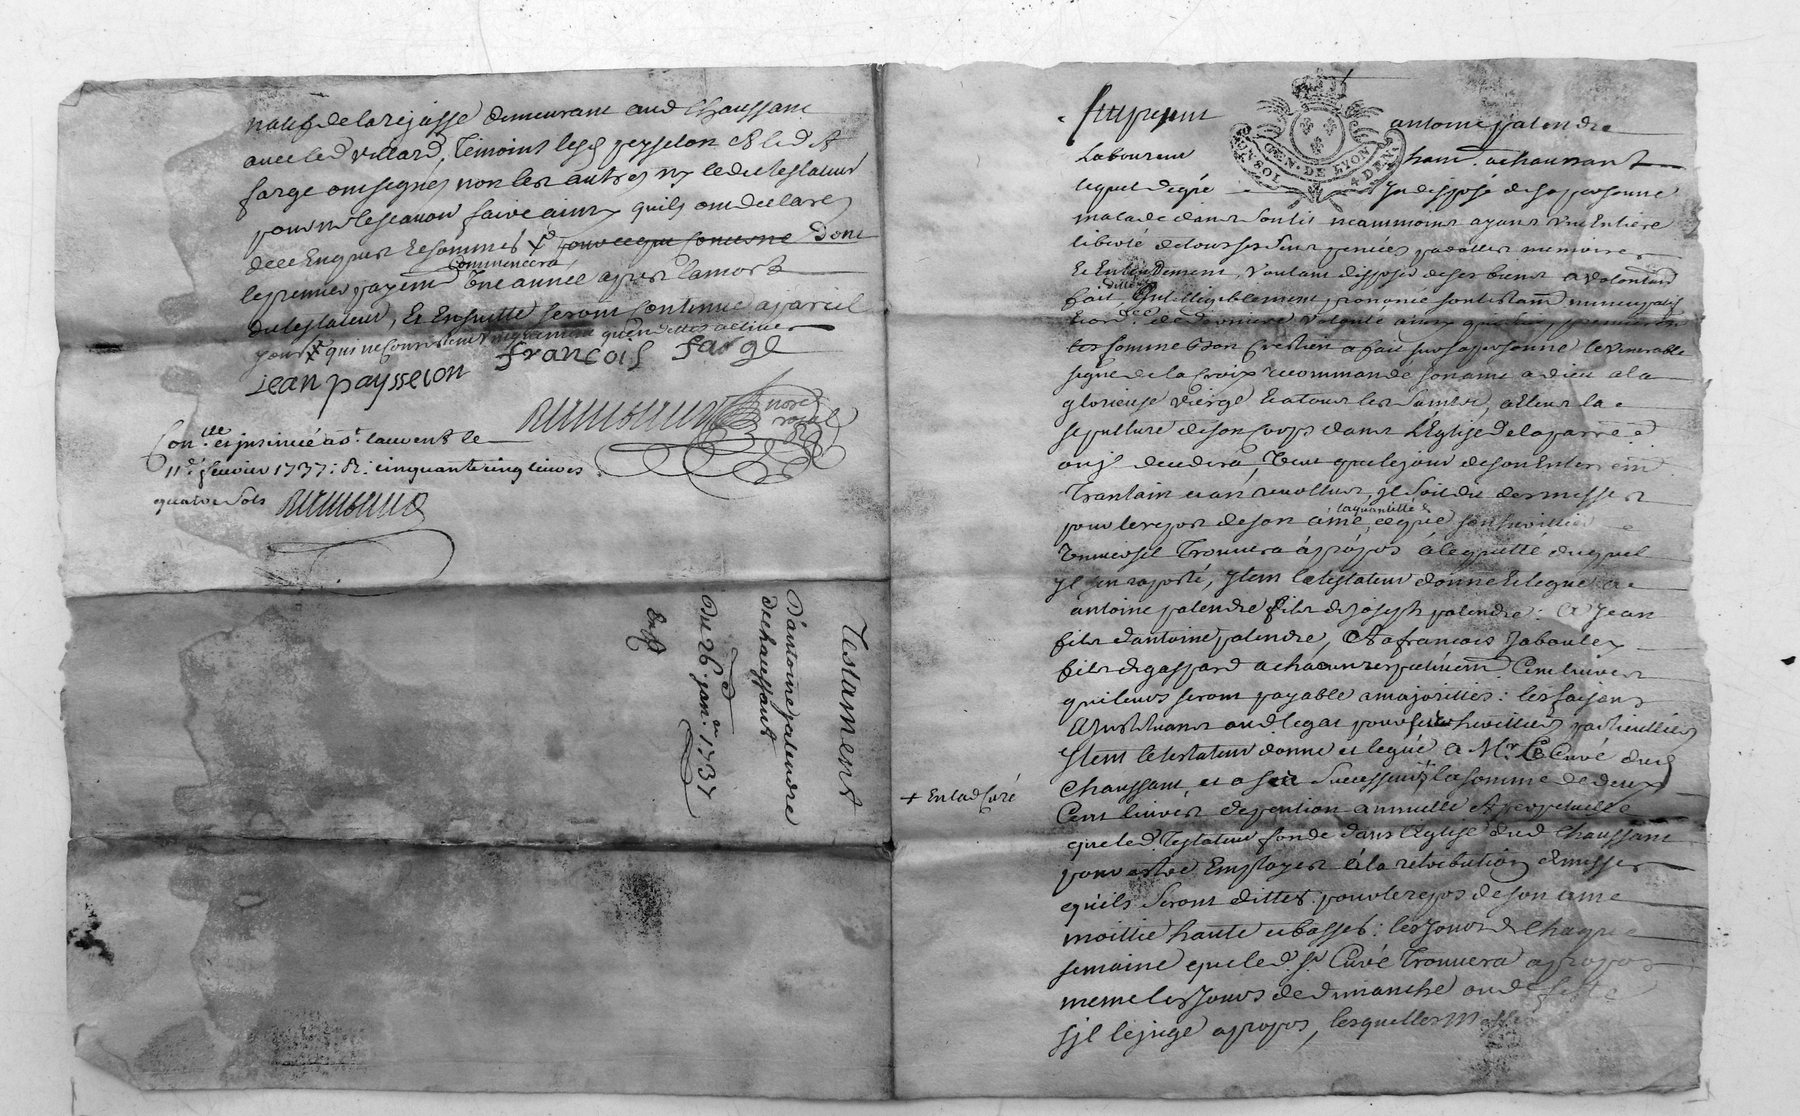 natif de la rejasse demeurant aud Chaussant
avec led Villard, Témoins les d peyselon & led
farge ont signés non les autres ny led testateur
pour ne le scavoir faire ainsy quils ont declarés
de ce Enquis et sommés
dont
le premier payemt commencera Une année apres la mort
du testateur, Et Ensuitte seront Continué a pareil
jour qui ne
jean paysselon francois farge
Remoneux
nore
royal
Con.lle et insinué a st. laurent le
11e. feuvier 1737: R: cinquante cinq livres
quatre sols Remoneux
Testament
D'antoine palendre
de chaussant
Du 26e. jan.er 1737
Exp
+ Enlad Curé
GEN. DE LYON
4 DEN.
fut present antoine palendre
Laboureur a chaussant
lequel de gré indisposé de sa personne
malade dans son lit neammoins ayant Une Entiere
liberté de tous ses sens pensées parolles memoire
Et Entendement, Voulant disposer de ses biens a volontair
fait, Intelligiblement prononcé son testamt nuncupatif
et ord.ce de derniere Volonté ainsy que
comme bon Crestien a fait sur sa personne le Venerable
signe de la Croix recommandé son ame a Dieu a la
glorieuse Vierge et a tous les Saints, esleu la
sepulture de son Corps dans L'Eglise de la parre.
ou jl decedera, Veut que le jour de son Enterremt
Trantain et an revollus, jl soit dit des messes
pour le repos de son ame, la quantitté que son heritier
Universel Trouvera à propos à la quitté duquel
jl sen raporté, jtem le testateur donne et legue a
antoine palendre fils de joseph palendre: a Jean
fils d'antoine palendre, Et a francois Jaboulex
fils de gaspard a chacun respectivemt Cent livres
qui leurs seront payable a majoritté: les faisans
& jnstituans aud legat pour ses heritiers particulliers
jtem le testateur donne et legue a Mr. Le Curé dud
Chaussant, et a ses successeurs la somme de deux
Cent livres de pention annuelle & perpetuelle
que led Testateur fonde dans l'Eglise dud Chaussant
pour estre Employer à la retribution de messes
quils seront dittes pour le repos de son ame
moittié haute et basses: les jours de Chaque
semaine que led. sr Curé Trouvera a propos
meme les jours de dimanche ou de feste
s'jl le juge a propos, lesquelles Mess